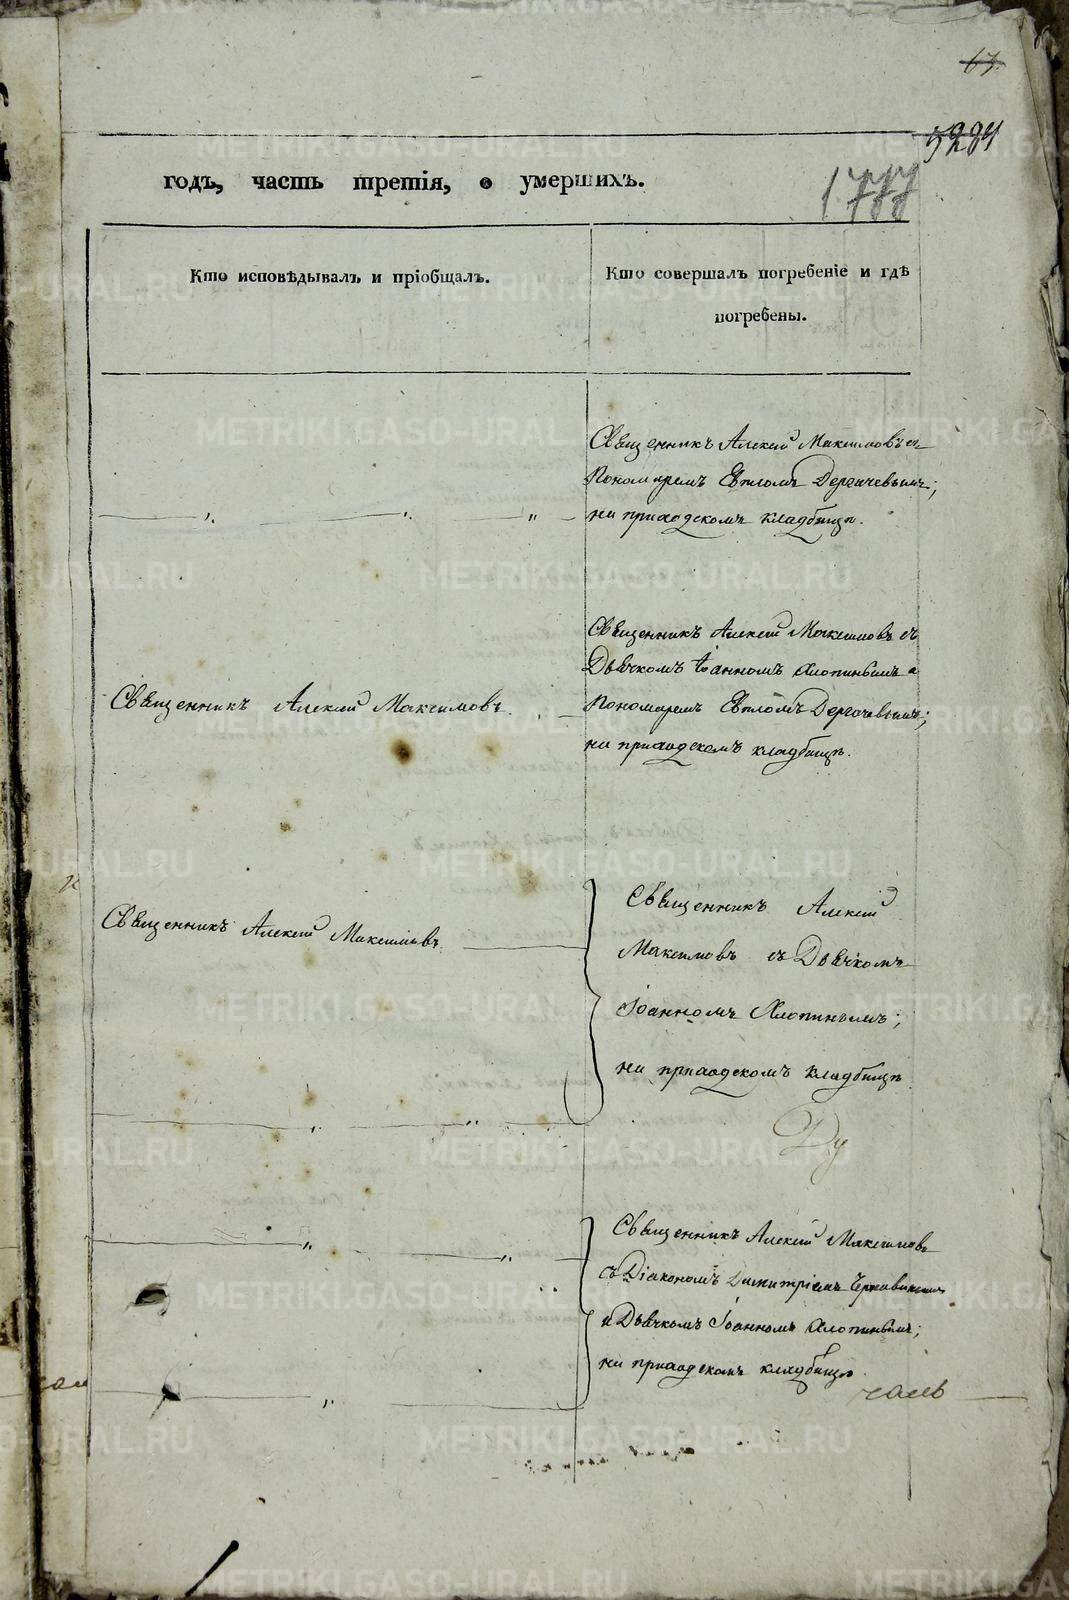 63.
5284
1777
годъ, часть третія, о умершихъ.
Кто исповѣдывалъ и пріобщалъ.
Кто совершалъ погребеніе и гдѣ
погребены.
Священникъ Алексій Максимовъ съ
Пономаремъ Евпломъ Дергачевымъ;
на приходскомъ кладбищѣ.
Священникъ Алексій Максимовъ.
Священникъ Алексій Максимовъ съ
Дьячкомъ Іоанномъ Хлопинымъ и
Пономаремъ Евпломъ Дергачевымъ;
на приходскомъ кладбищѣ.
Священникъ Алексій Максимовъ.
Священникъ Алексій
Максимовъ съ Дьячкомъ
Іоанномъ Хлопинымъ;
на приходскомъ кладбищѣ
Ду
Священникъ Алексій Максимовъ
съ Діакономъ Димитріемъ
и Дьячкомъ Іоанномъ Хлопинымъ;
на приходскомъ кладбищѣ.
METRIKI.GASO-URAL.RU